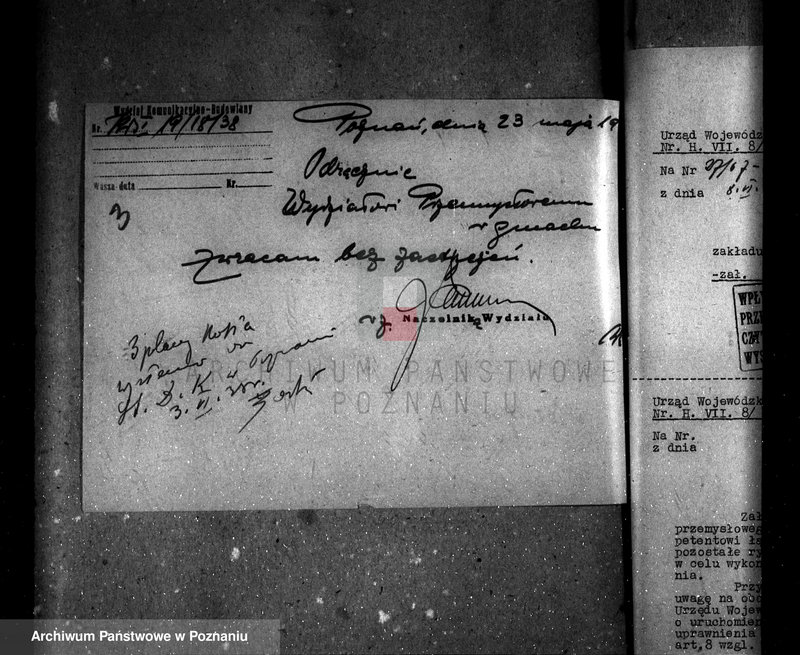 Wydział Komunikacyjno-Budowlany
Nr. 19/18/38
Poznań, dnia 23 maja 19
Odręcznie
Wasza data Nr.
Wydziałowi Przemysłowemu
w gmachu
Zwracam bez zastrzeżeń.
Naczelnik Wydziału
3 plany
3. VI. 38r.
ARCHIWUM PAŃSTWOWE
W POZNANIU
Urząd Wojewódz
Nr. H. VII. 8/
Na Nr
z dnia 8.VI.
zakładu
-zał.
WPŁ
PRZE
CZY
WYS
Urząd Wojewódzk
Nr. H. VII. 8/
Na Nr.
z dnia
Zał
przemysłoweg
petentowi ła
pozostałe ry
w celu wykon
nia.
Przy
uwagę na obo
Urzędu Wojew
o uruchomien
uprawnienia
art,8 wzgl.
Archiwum Państwowe w Poznaniu